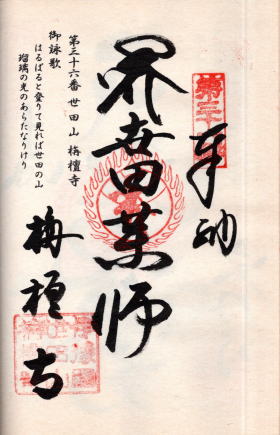 奉納
世田薬師
栴檀寺
第三十六番 世田山 栴檀寺
御詠歌
はるばると登りて見れば世田の山
瑠璃の光のあらたなりけり